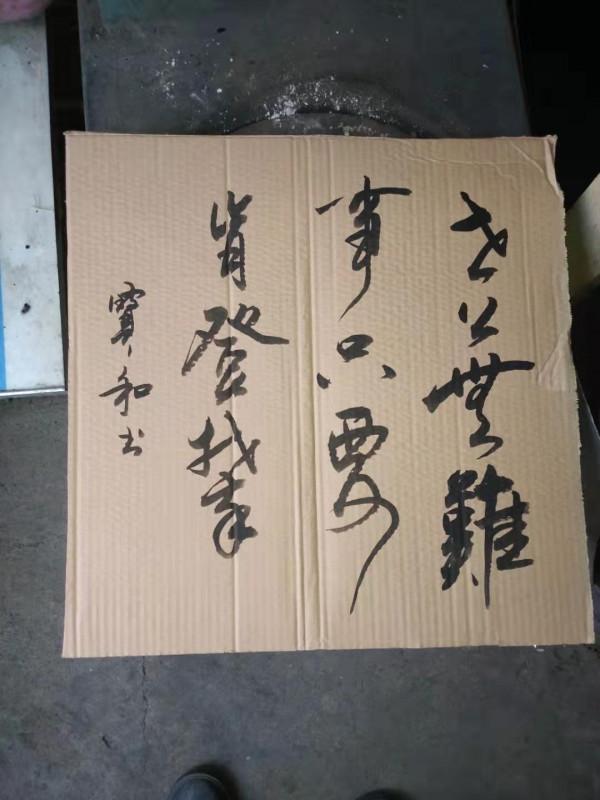 世上無難
事只要
肯登攀
寶和书